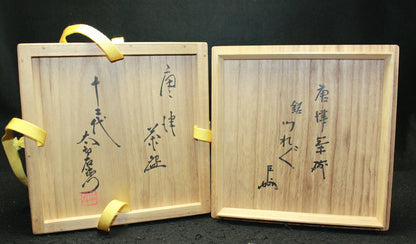 唐津
茶盌
十三代
太郎右衛門
唐津茶碗
銘 つれ〲